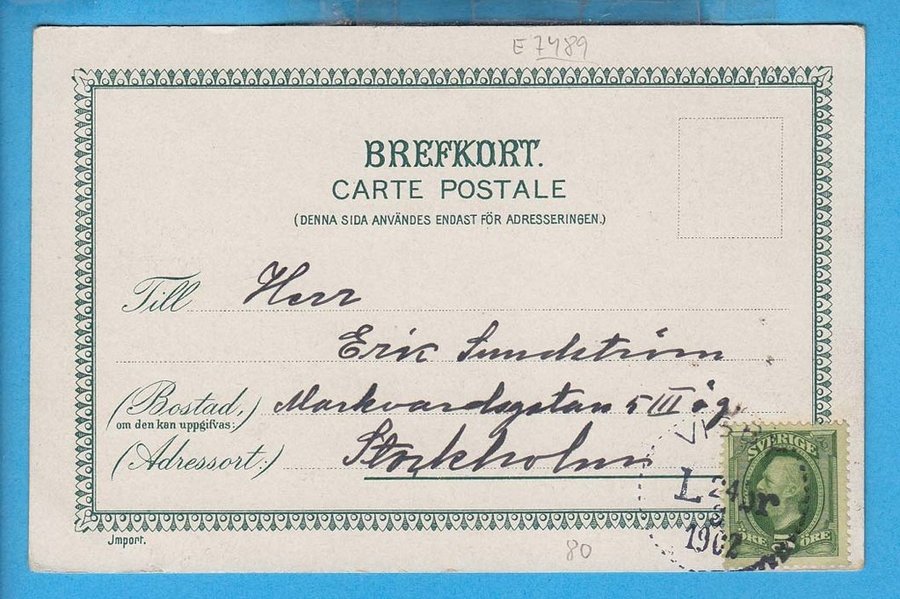 E 7489
BREFKORT.
CARTE POSTALE
(DENNA SIDA ANVÄNDES ENDAST FÖR ADRESSERINGEN.)
Till Herr
Erik Sundström
(Bostad,) Markvardsgatan 5 III ög
om den kan uppgifvas:
(Adressort:) Stockholm
SVERIGE
24
1902
ÖRE 5 ÖRE
Import.
80